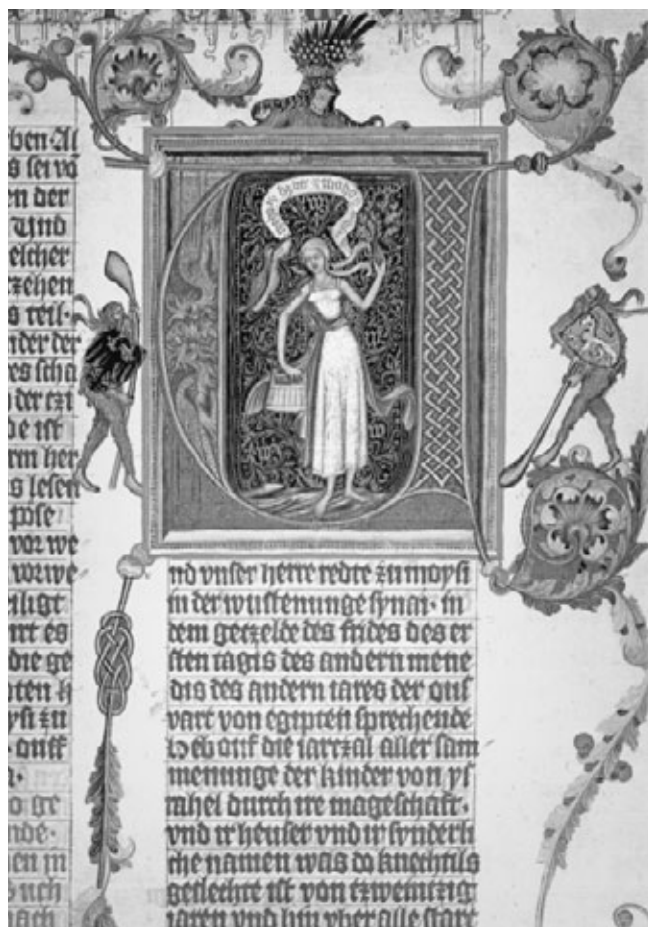 ben Al
s sei vō
en der
Und
elcher
zehen
s teil·
nder der
es scha
der tzi
e ist
rm her
s lesen
pose
vor we
vorwe
iligt
irt es
die ge
ten h
ysi zu
ouff
o ge
nde·
en in
uch
nach
nd vnser herre redte zu moysi
in der wustenunge synai· in
dem getzelde des frides des er
sten tagis des andern mene
dis des andern iares der ous
vart von egipten sprechende
Heb ouf die iarczal aller sam
menunge der kinder von ys
rahel durch ire mageschaft·
vnd ir heuser vnd ir synderli
che namen was do knechtils
geslechte ist von tzweintzig
iaren vnd hin vber alle starc